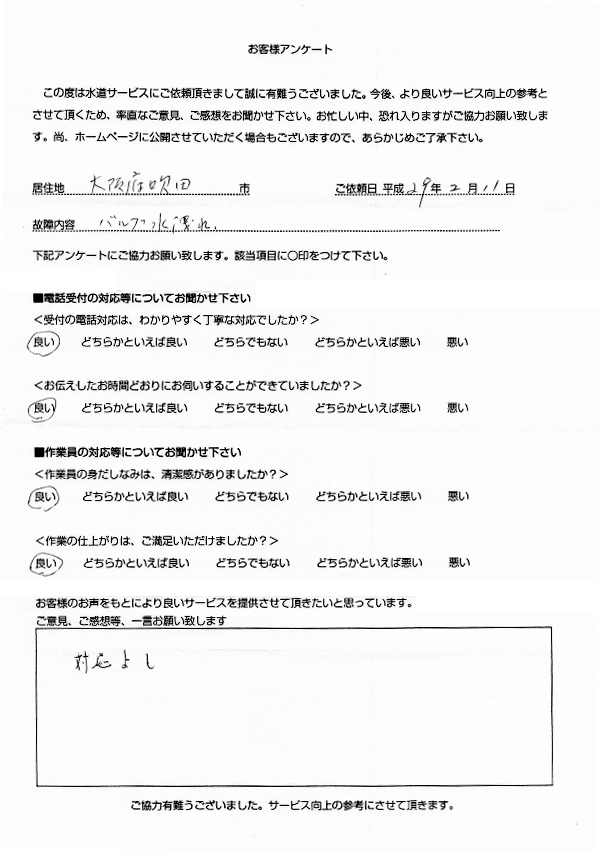 お客様アンケート
この度は水道サービスにご依頼頂きまして誠に有難うございました。今後、より良いサービス向上の参考と
させて頂くため、率直なご意見、ご感想をお聞かせ下さい。お忙しい中、恐れ入りますがご協力お願い致しま
す。尚、ホームページに公開させていただく場合もございますので、あらかじめご了承下さい。
居住地 大阪府吹田 市 ご依頼日 平成 29年 2 月 11 日
故障内容 バルブ水洩れ.
下記アンケートにご協力お願い致します。該当項目に〇印をつけて下さい。
■電話受付の対応等についてお聞かせ下さい
＜受付の電話対応は、わかりやすく丁寧な対応でしたか？＞
良い どちらかといえば良い どちらでもない どちらかといえば悪い 悪い
＜お伝えしたお時間どおりにお伺いすることができていましたか？＞
良い どちらかといえば良い どちらでもない どちらかといえば悪い 悪い
■作業員の対応等についてお聞かせ下さい
＜作業員の身だしなみは、清潔感がありましたか？＞
良い どちらかといえば良い どちらでもない どちらかといえば悪い 悪い
＜作業の仕上がりは、ご満足いただけましたか？＞
良い どちらかといえば良い どちらでもない どちらかといえば悪い 悪い
お客様のお声をもとにより良いサービスを提供させて頂きたいと思っています。
ご意見、ご感想等、一言お願い致します
対応よし
ご協力有難うございました。サービス向上の参考にさせて頂きます。